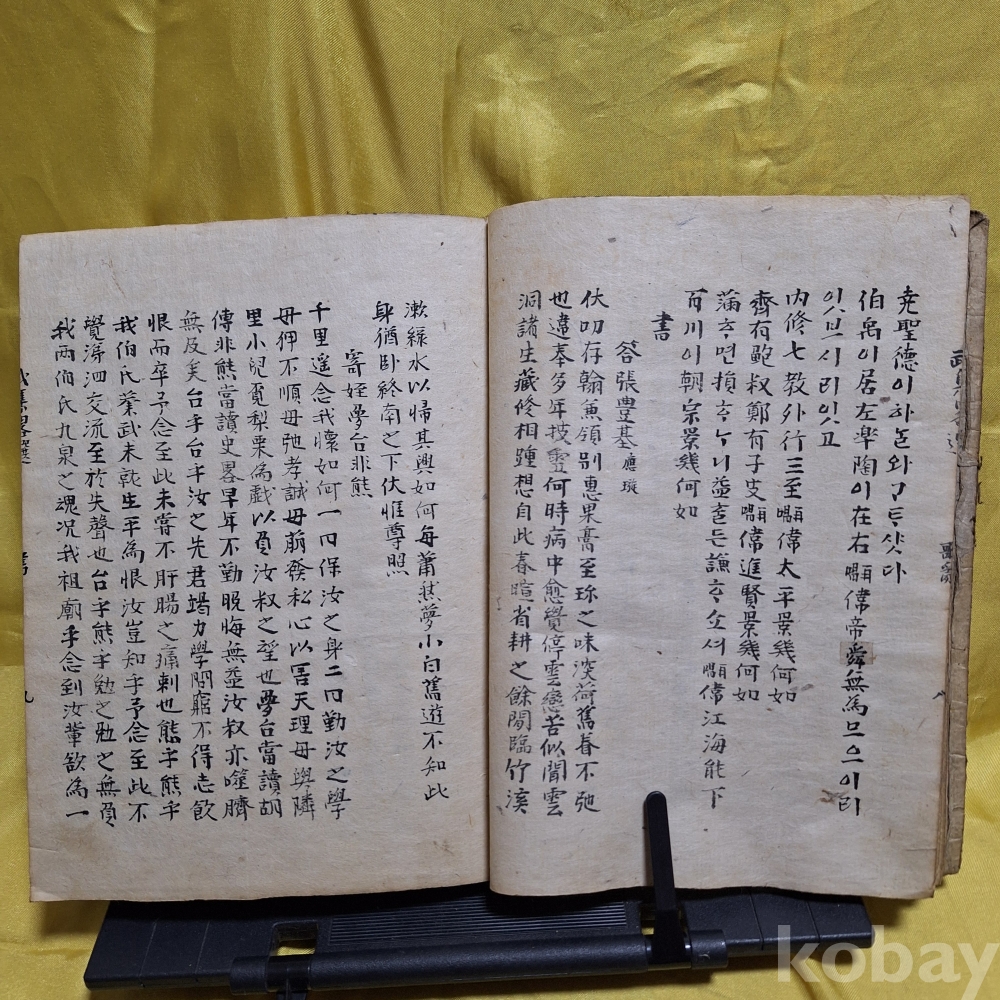 堯聖德이하놀와ᄀᆞᄐᆞ샷다
伯禹이居左皐陶이在右嚬偉帝舜無為므으이리
잇브시리잇고
內修七教外行三至嚬偉太平景幾何如
齊有鮑叔鄭有子皮嚬偉進賢景幾何如
蒲ᄒᆞ면損ᄒᆞᄂᆞ니益ᄒᆞᄃᆞᆫ謙ᄒᆞ쇼셔嚬偉江海能下
百川이朝宗景幾何如
書
答張豊基應璇
伏叨存翰魚領別惠果膏至珎之味深荷舊眷不弛
也違奉多年披雲何時病中愈覺停雲戀苦似聞雲
洞諸生藏修相踵想自此春暄省耕之餘閒臨竹溪
漱綠水以歸其興如何每蕭然夢小白舊遊不知此
身猶臥終南之下伏惟尊照
寄姪夢台非熊
千里遥念我懷如何一曰保汝之身二曰勤汝之學
毋狎不順毋弛孝誠毋萠發私心以害天理毋與隣
里小兒覓梨栗為戱以負汝叔之望也夢台當讀胡
傳非熊當讀史畧早年不勤晚悔無益汝叔亦噬臍
無及矣台乎台乎汝之先君竭力學問窮不得志飮
恨而卒予念至此未嘗不肝腸之痛刺也熊乎熊乎
我伯氏業武未就生平為恨汝豈知乎予念至此不
覺涕泗交流至於失聲也台乎熊乎勉之勉之無負
我两伯氏九泉之魂况我祖廟乎念到汝輩欲為一
書
九
kobay